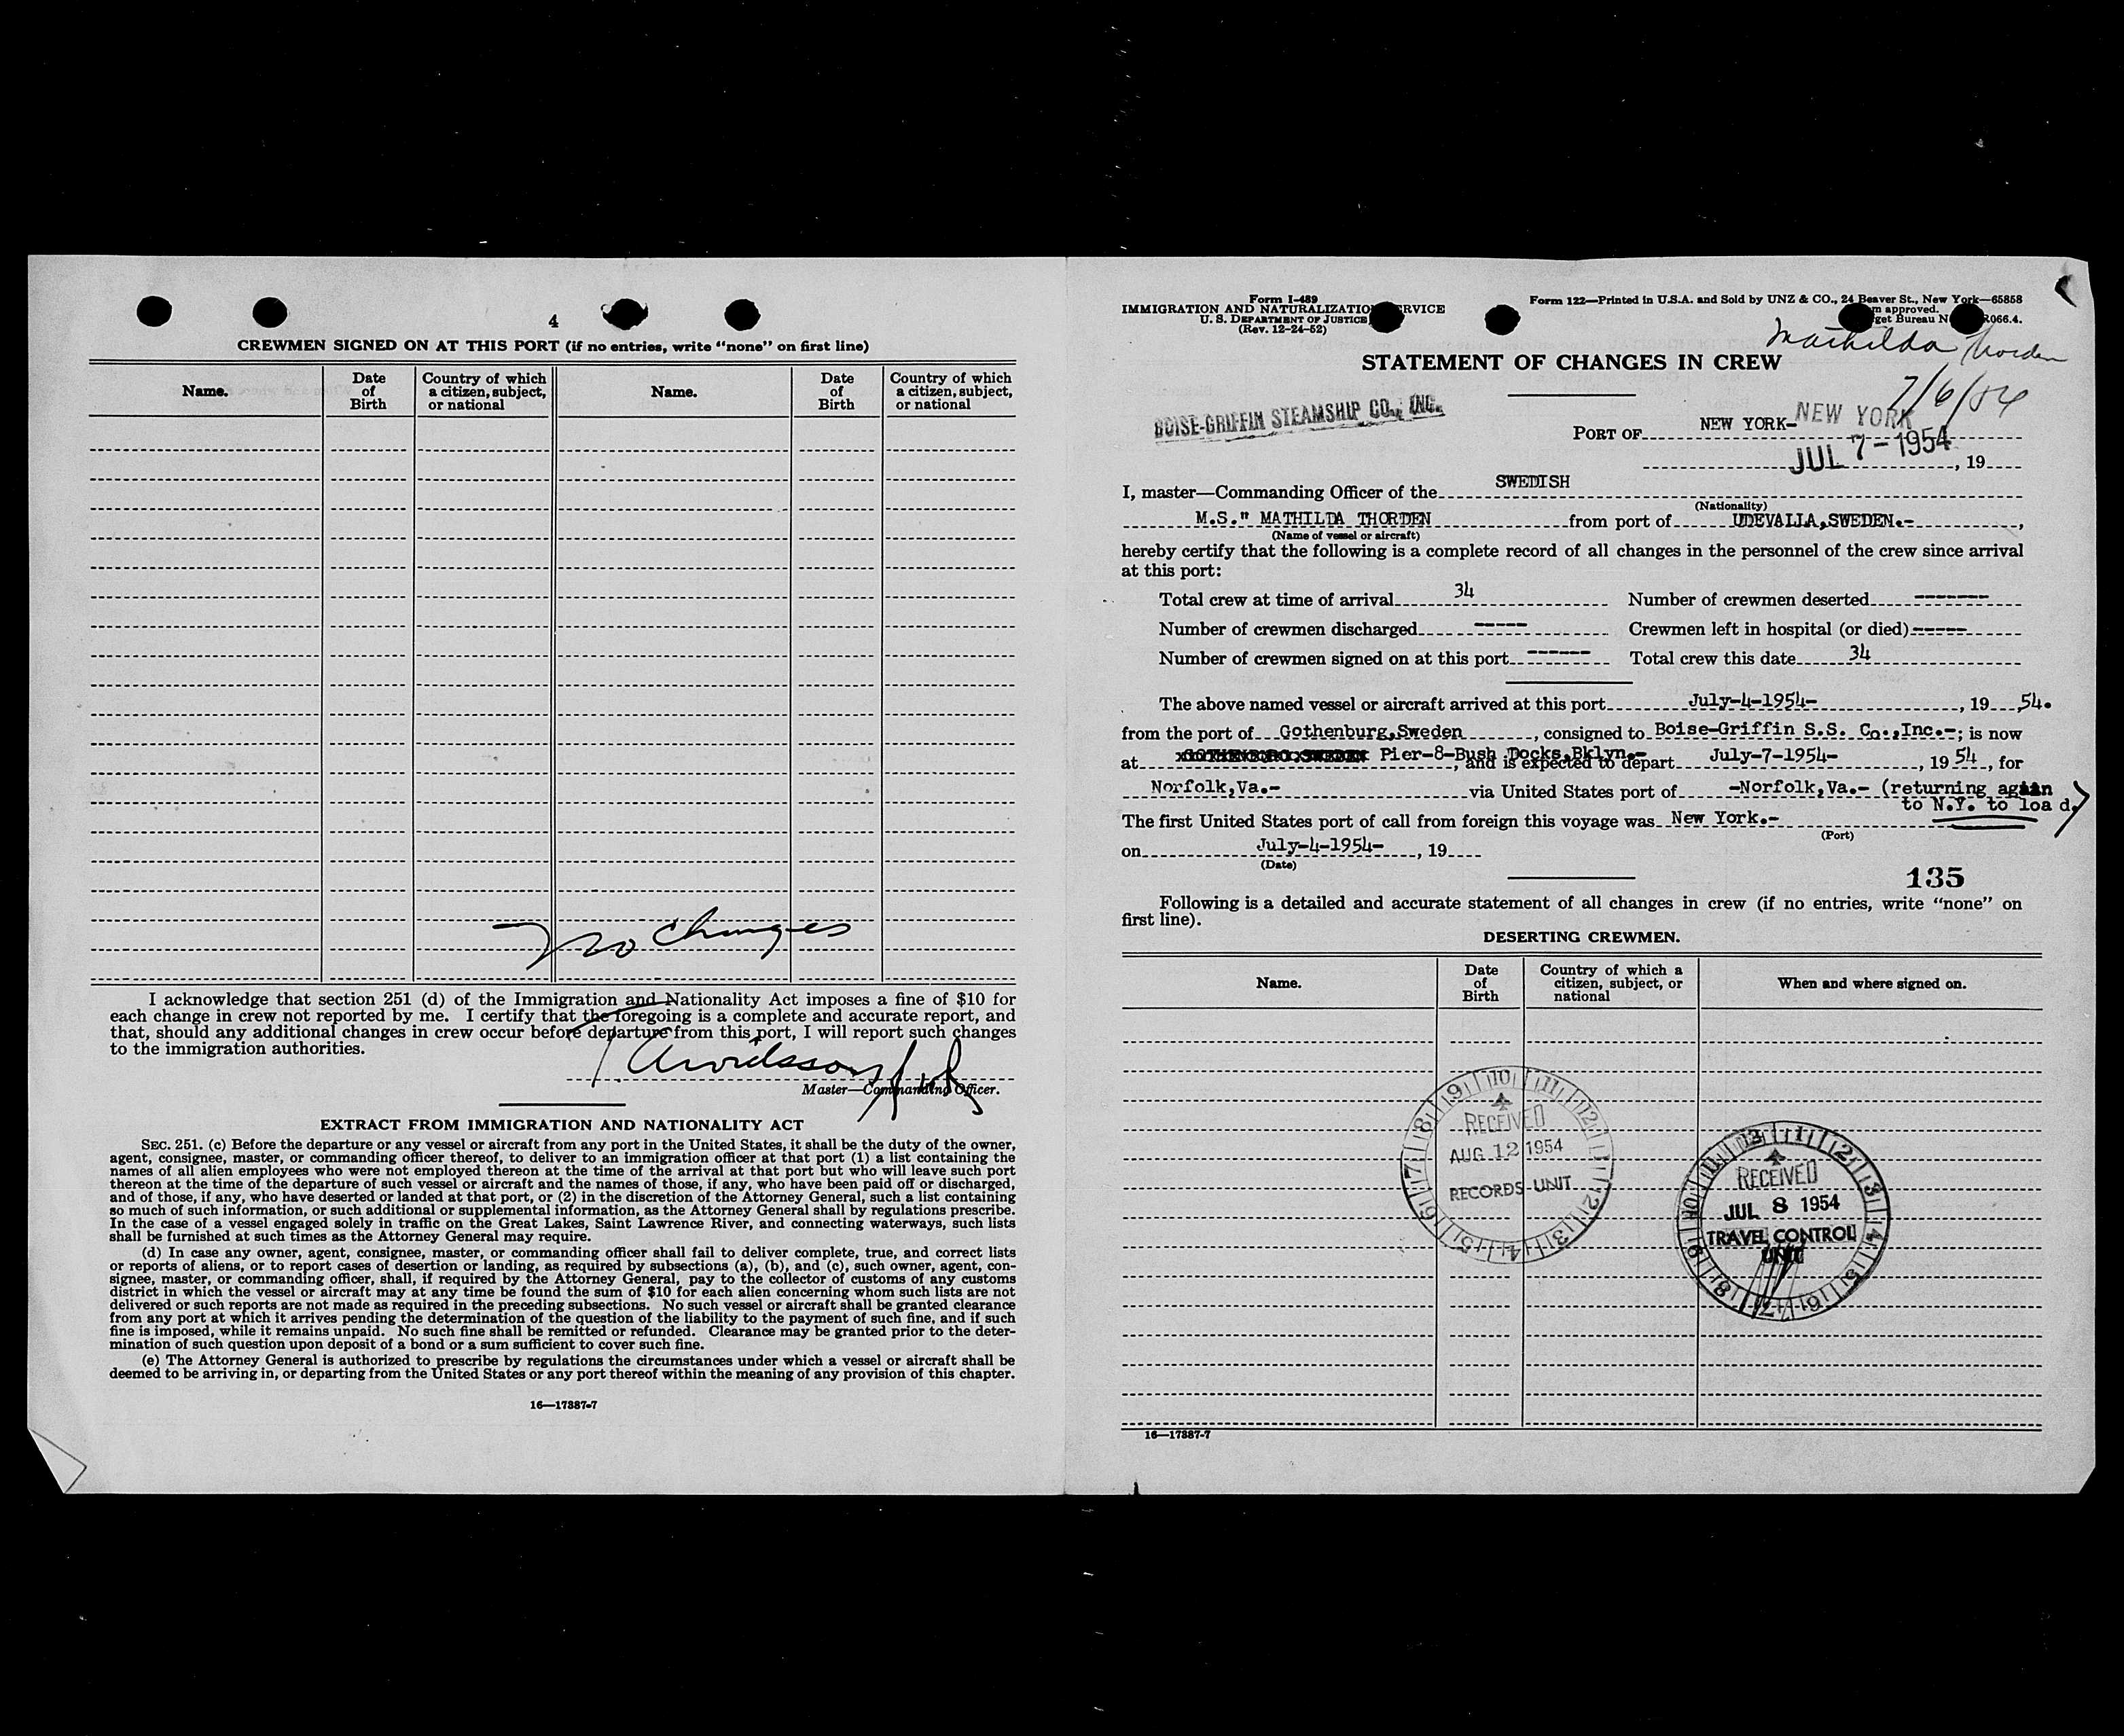 4
CREWMEN SIGNED ON AT THIS PORT (if no entries, write “none” on first line)
Name.
Date of Birth
Country of which a citizen, subject, or national
Name.
Date of Birth
Country of which a citizen, subject, or national
no changes
I acknowledge that section 251 (d) of the Immigration and Nationality Act imposes a fine of $10 for
each change in crew not reported by me. I certify that the foregoing is a complete and accurate report, and
that, should any additional changes in crew occur before departure from this port, I will report such changes
to the immigration authorities.
Arvidsson
Master—Commanding Officer.
EXTRACT FROM IMMIGRATION AND NATIONALITY ACT
SEC. 251. (c) Before the departure or any vessel or aircraft from any port in the United States, it shall be the duty of the owner,
agent, consignee, master, or commanding officer thereof, to deliver to an immigration officer at that port (1) a list containing the
names of all alien employees who were not employed thereon at the time of the arrival at that port but who will leave such port
thereon at the time of the departure of such vessel or aircraft and the names of those, if any, who have been paid off or discharged,
and of those, if any, who have deserted or landed at that port, or (2) in the discretion of the Attorney General, such a list containing
so much of such information, or such additional or supplemental information, as the Attorney General shall by regulations prescribe.
In the case of a vessel engaged solely in traffic on the Great Lakes, Saint Lawrence River, and connecting waterways, such lists
shall be furnished at such times as the Attorney General may require.
(d) In case any owner, agent, consignee, master, or commanding officer shall fail to deliver complete, true, and correct lists
or reports of aliens, or to report cases of desertion or landing, as required by subsections (a), (b), and (c), such owner, agent, con-
signee, master, or commanding officer, shall, if required by the Attorney General, pay to the collector of customs of any customs
district in which the vessel or aircraft may at any time be found the sum of $10 for each alien concerning whom such lists are not
delivered or such reports are not made as required in the preceding subsections. No such vessel or aircraft shall be granted clearance
from any port at which it arrives pending the determination of the question of the liability to the payment of such fine, and if such
fine is imposed, while it remains unpaid. No such fine shall be remitted or refunded. Clearance may be granted prior to the deter-
mination of such question upon deposit of a bond or a sum sufficient to cover such fine.
(e) The Attorney General is authorized to prescribe by regulations the circumstances under which a vessel or aircraft shall be
deemed to be arriving in, or departing from the United States or any port thereof within the meaning of any provision of this chapter.
16—17887-7
Form I-489
IMMIGRATION AND NATURALIZATIO RVICE
U. S. DEPARTMENT OF JUSTICE
(Rev. 12-24-52)
Form 122—Printed in U.S.A. and Sold by UNZ & CO., 24 Beaver St., New York—65858
m approved.
get Bureau N R066.4.
Mathilda Thorden
7/6/54
STATEMENT OF CHANGES IN CREW
BOISE-GRIFFIN STEAMSHIP CO., INC.
PORT OF NEW YORK- NEW YORK
JUL 7 - 1954, 19
I, master—Commanding Officer of the SWEDISH
(Nationality)
M.S." MATHILDA THORDEN from port of UDEVALLA,SWEDEN.-,
(Name of vessel or aircraft)
hereby certify that the following is a complete record of all changes in the personnel of the crew since arrival
at this port:
Total crew at time of arrival 34 Number of crewmen deserted -------
Number of crewmen discharged ----- Crewmen left in hospital (or died) -----
Number of crewmen signed on at this port ------ Total crew this date 34
The above named vessel or aircraft arrived at this port July-4-1954-, 19 54.
from the port of Gothenburg,Sweden, consigned to Boise-Griffin S.S. Co.,Inc.-; is now
at GOTHENBURG.SWEDEN Pier-8-Bush Docks,Bklyn.-, and is expected to depart July-7-1954-, 19 54, for
Norfolk,Va.- via United States port of -Norfolk,Va.- (returning again
to N.Y. to loa d.)
The first United States port of call from foreign this voyage was New York.-
(Port)
on July-4-1954-, 19
(Date)
135
Following is a detailed and accurate statement of all changes in crew (if no entries, write “none” on
first line).
DESERTING CREWMEN.
Name.
Date of Birth
Country of which a citizen, subject, or national
When and where signed on.
9 10 11 12 1 2 3 4 5 6 7 8
RECEIVED
AUG 12 1954
RECORDS UNIT
12 1 2 3 4 5 6 7 8 9 10 11
RECEIVED
JUL 8 1954
TRAVEL CONTROL
UNIT
16—17887-7